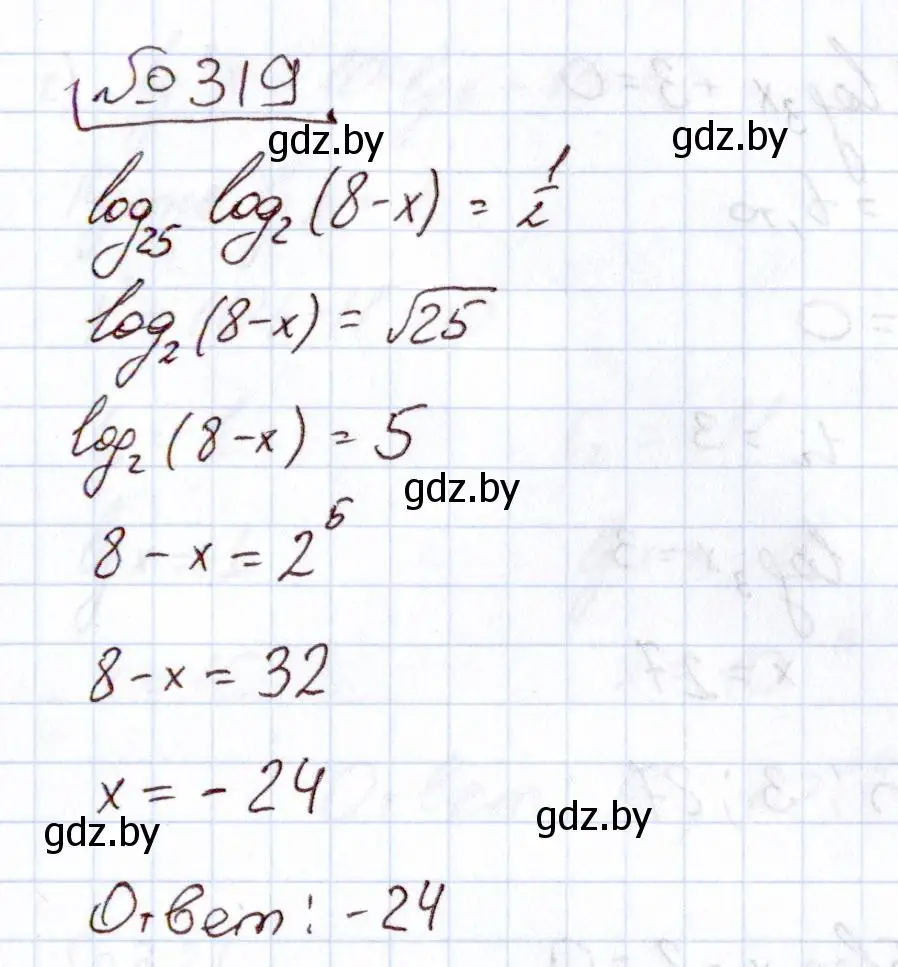 № 319
gdz.by
gdz.by
log₂₅ log₂ (8 - x) = 1/2
log₂ (8 - x) = √25
log₂ (8 - x) = 5
gdz.by
8 - x = 2⁵
8 - x = 32
x = - 24
gdz.by
gdz.by
Ответ: - 24